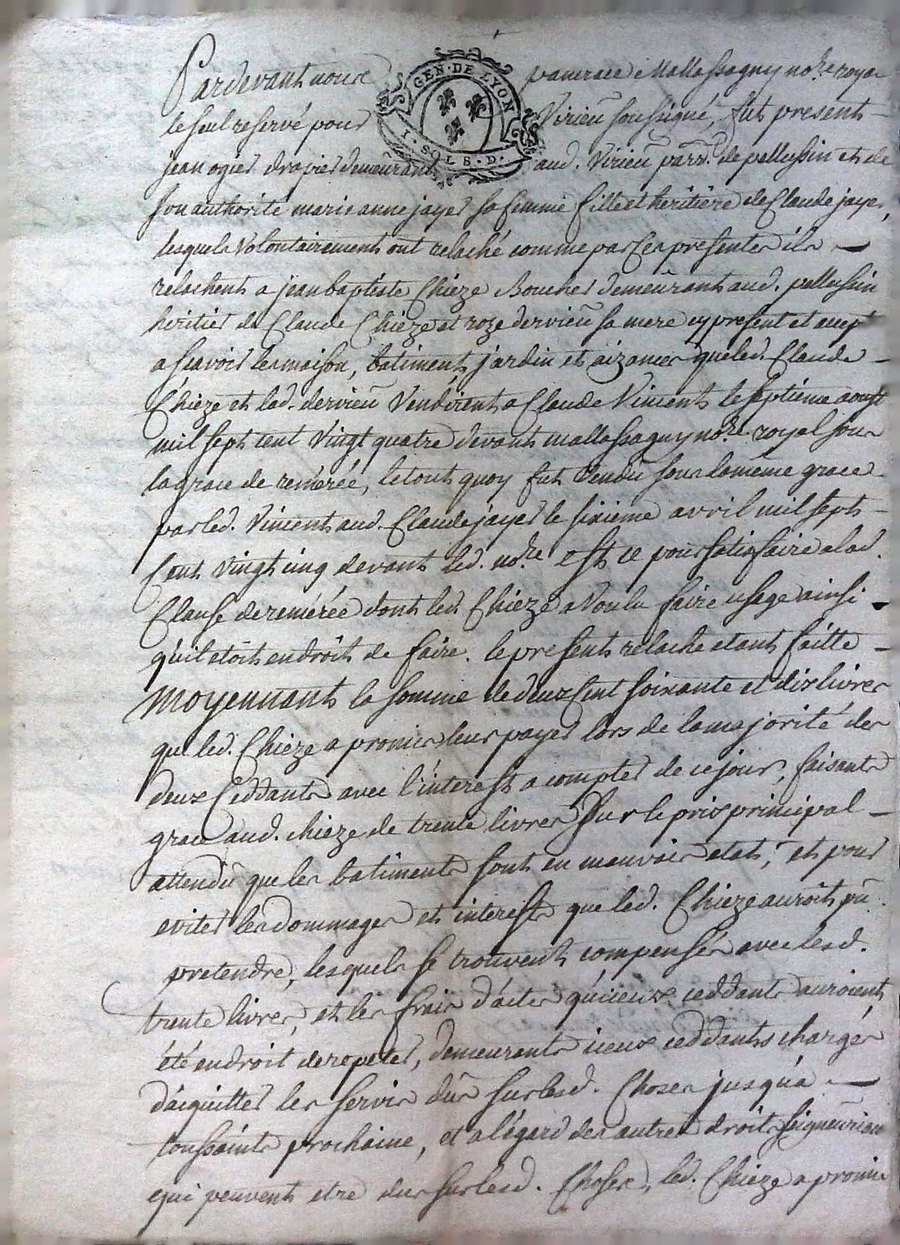 Pardevant nous pancrace Mallassagny no.re royal
GEN · DE LYON
I · SOLS · D ·
le seul reservé pour Virieu soussigné, fut present
jean ogier drapier demeurant aud. Virieu parr. de pellussin et de
son authorité marie anne jayer sa femme fille et heritière de Claude jayer,
lesquels volontairement ont relaché comme par ces presentes ils
relachent a jean baptiste Chieze Boucher demeurant aud. pellussin
heritier de Claude Chieze et roze dervieu sa mere cy present et accept
a scavoir les maison, batiment, jardin et aizances que led. Claude
Chieze et lad. dervieu Vendirent a Claude Viment le septième aoust
mil sept cent vingt quatre devant mallassagny no.re royal sous
la grace de remerée, le tout quoy fut vendu sous la même grace
par led. Viment aud. Claude jayer le sixieme avril mil sept
Cent vingt cinq devant led. no.re est ce pour satisfaire a lad.
Clause de remérée dont led. Chieze a voulu faire usage ainsi
qu'il etoit en droit de faire. le present relache etant faitte
Moyennant la somme de deux cent soixante et dix livres
que led. Chieze a promis leur payer lors de la majorité des
deux Ceddants avec l'interest a compter de ce jour, faisants
grace aud. chieze de trente livres sur le prix principal
attendu que les batiments sont en mauvais etat, et pour
eviter les dommages et interests que led. Chieze auroit pû
pretendre, lesquels se trouvent compensés avec lesd.
trente livres, et les frais d'actes qu'iceux ceddants auroient
été en droit de repeter, demeurants iceux ceddants chargés
d'aiquitter les servis dûs sur lesd. Choses jusqu'a
toussaint prochaine, et a l'égard des autres droits seigneuriaux
qui peuvent etre dus sur lesd. Choses, led. Chieze a promis